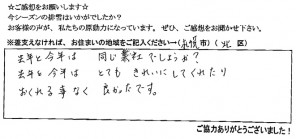 ☆ご感想をお願いします☆
今シーズンの排雪はいかがでしたか？
お客様の声が、私たちの原動力になっています。ぜひ、ご感想をお聞かせ下さい。
※差支えなければ、お住まいの地域をご記入ください→（札幌市）（北 区）
去年と今年は 同じ業社でしょうか？
去年と今年は とても きれいにしてくれたり
おくれる事なく 良かったです。
ご協力ありがとうございました！